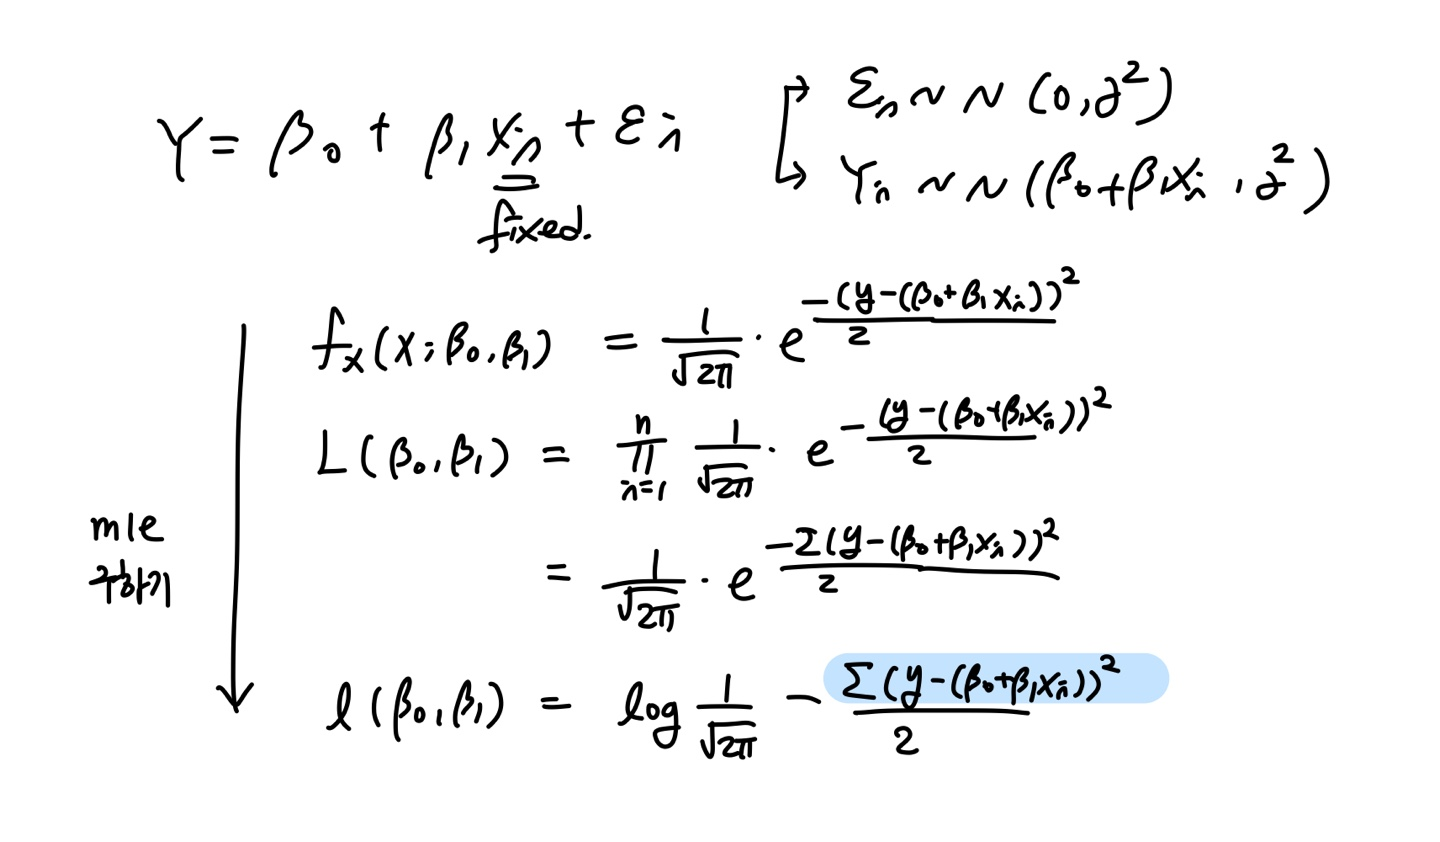 Y = β₀ + β₁ xᵢ + εᵢ
fixed.
εᵢ ~ N (0, σ²)
Yᵢ ~ N (β₀+β₁xᵢ , σ²)
fₓ(x; β₀, β₁) = 1/√2π · e^(-(y-(β₀+β₁xᵢ))²/2)
L(β₀, β₁) = ∏ᵢ₌₁ⁿ 1/√2π · e^(-(y-(β₀+β₁xᵢ))²/2)
mle
구하기
= 1/√2π · e^(-Σ(y-(β₀+β₁xᵢ))²/2)
l(β₀, β₁) = log 1/√2π - Σ(y-(β₀+β₁xᵢ))²/2